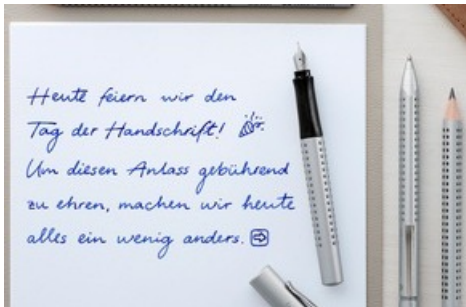 Heute feiern wir den
Tag der Handschrift! 🎉
Um diesen Anlass gebührend
zu ehren, machen wir heute
alles ein wenig anders. ➡